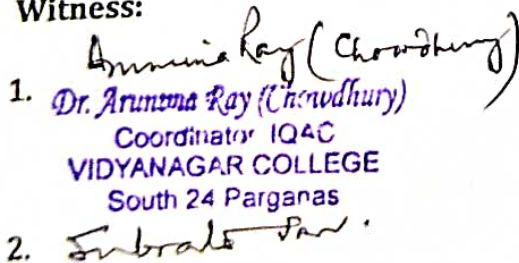 Witness:
Arunima Ray (Chowdhury)
1. Dr. Arunima Ray (Chowdhury)
Coordinator IQAC
VIDYANAGAR COLLEGE
South 24 Parganas
2. Subrata